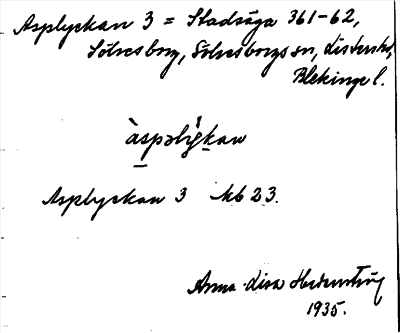 Asplyckan 3 = Stadsäga 361-62,
Sölvesborg, Sölvesborgs sn, Listers hd,
Blekinge l.
àspəlýkan
Asplyckan 3 kb 23.
Anna-Lisa
1935.